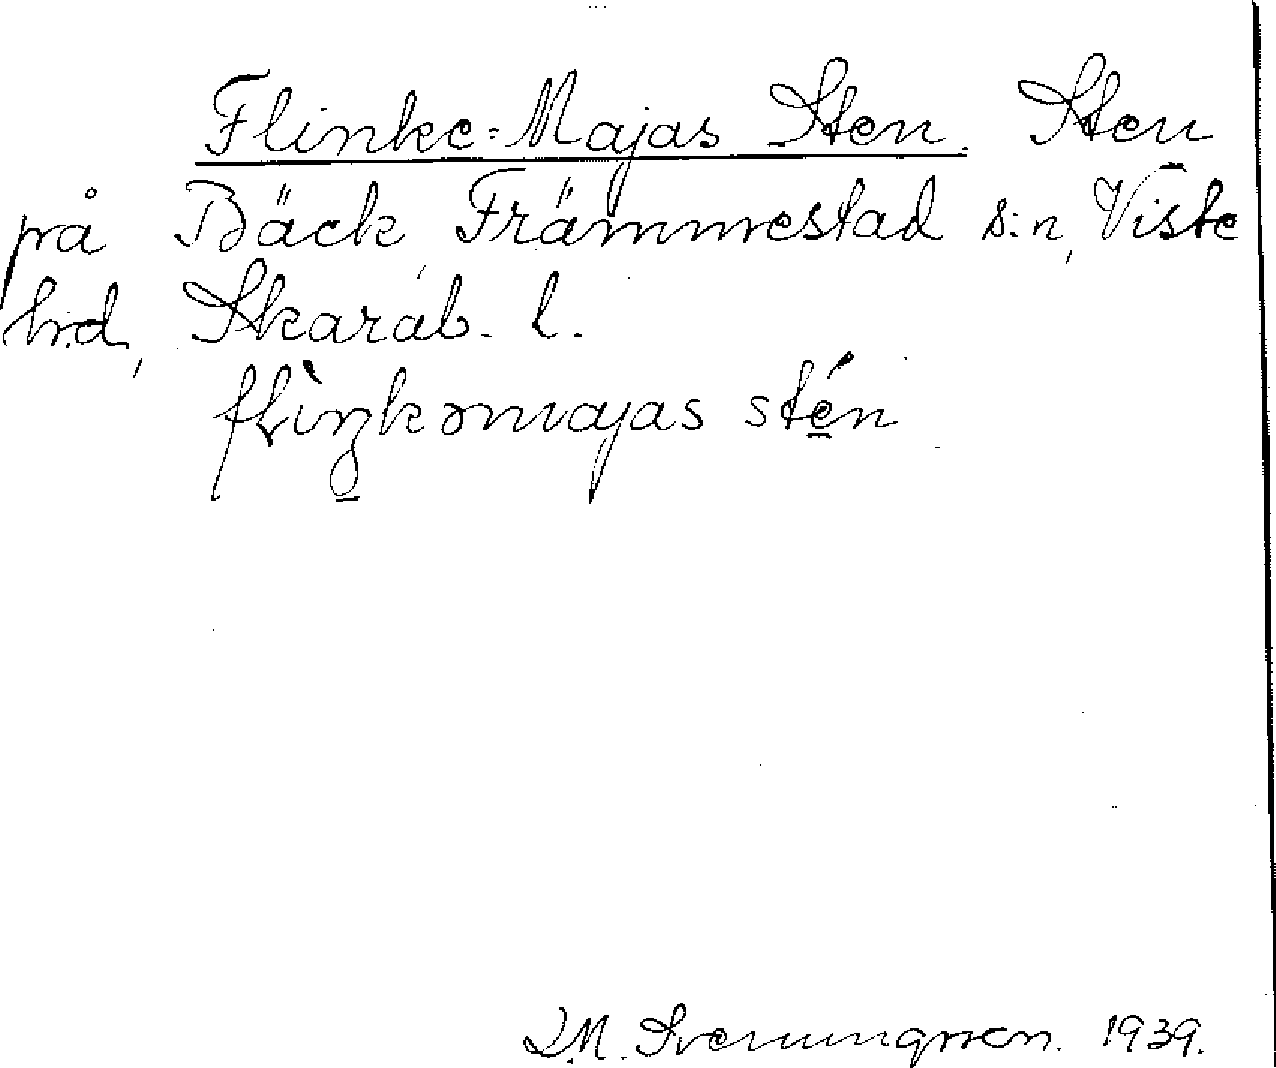 Flinke-Majas Sten. Sten
på Bäck, Främmestad s:n, Viste
hd, Skarab. l.
flìŋkəmajas stén
D.M. Svenungsson. 1939.